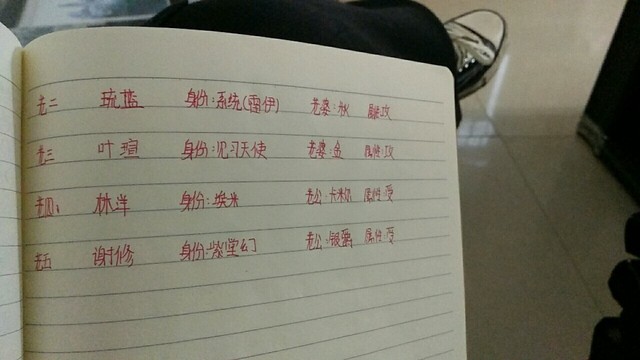 老二 琉蓝 身份:系统(雷伊) 老婆:秋 属性:攻
老三 叶瑄 身份:见习天使 老婆:金 属性:攻
老四: 林洋 身份:埃米 老公:卡米尔 属性:受
老五 谢修 身份:紫堂幻 老公:银爵 属性:受